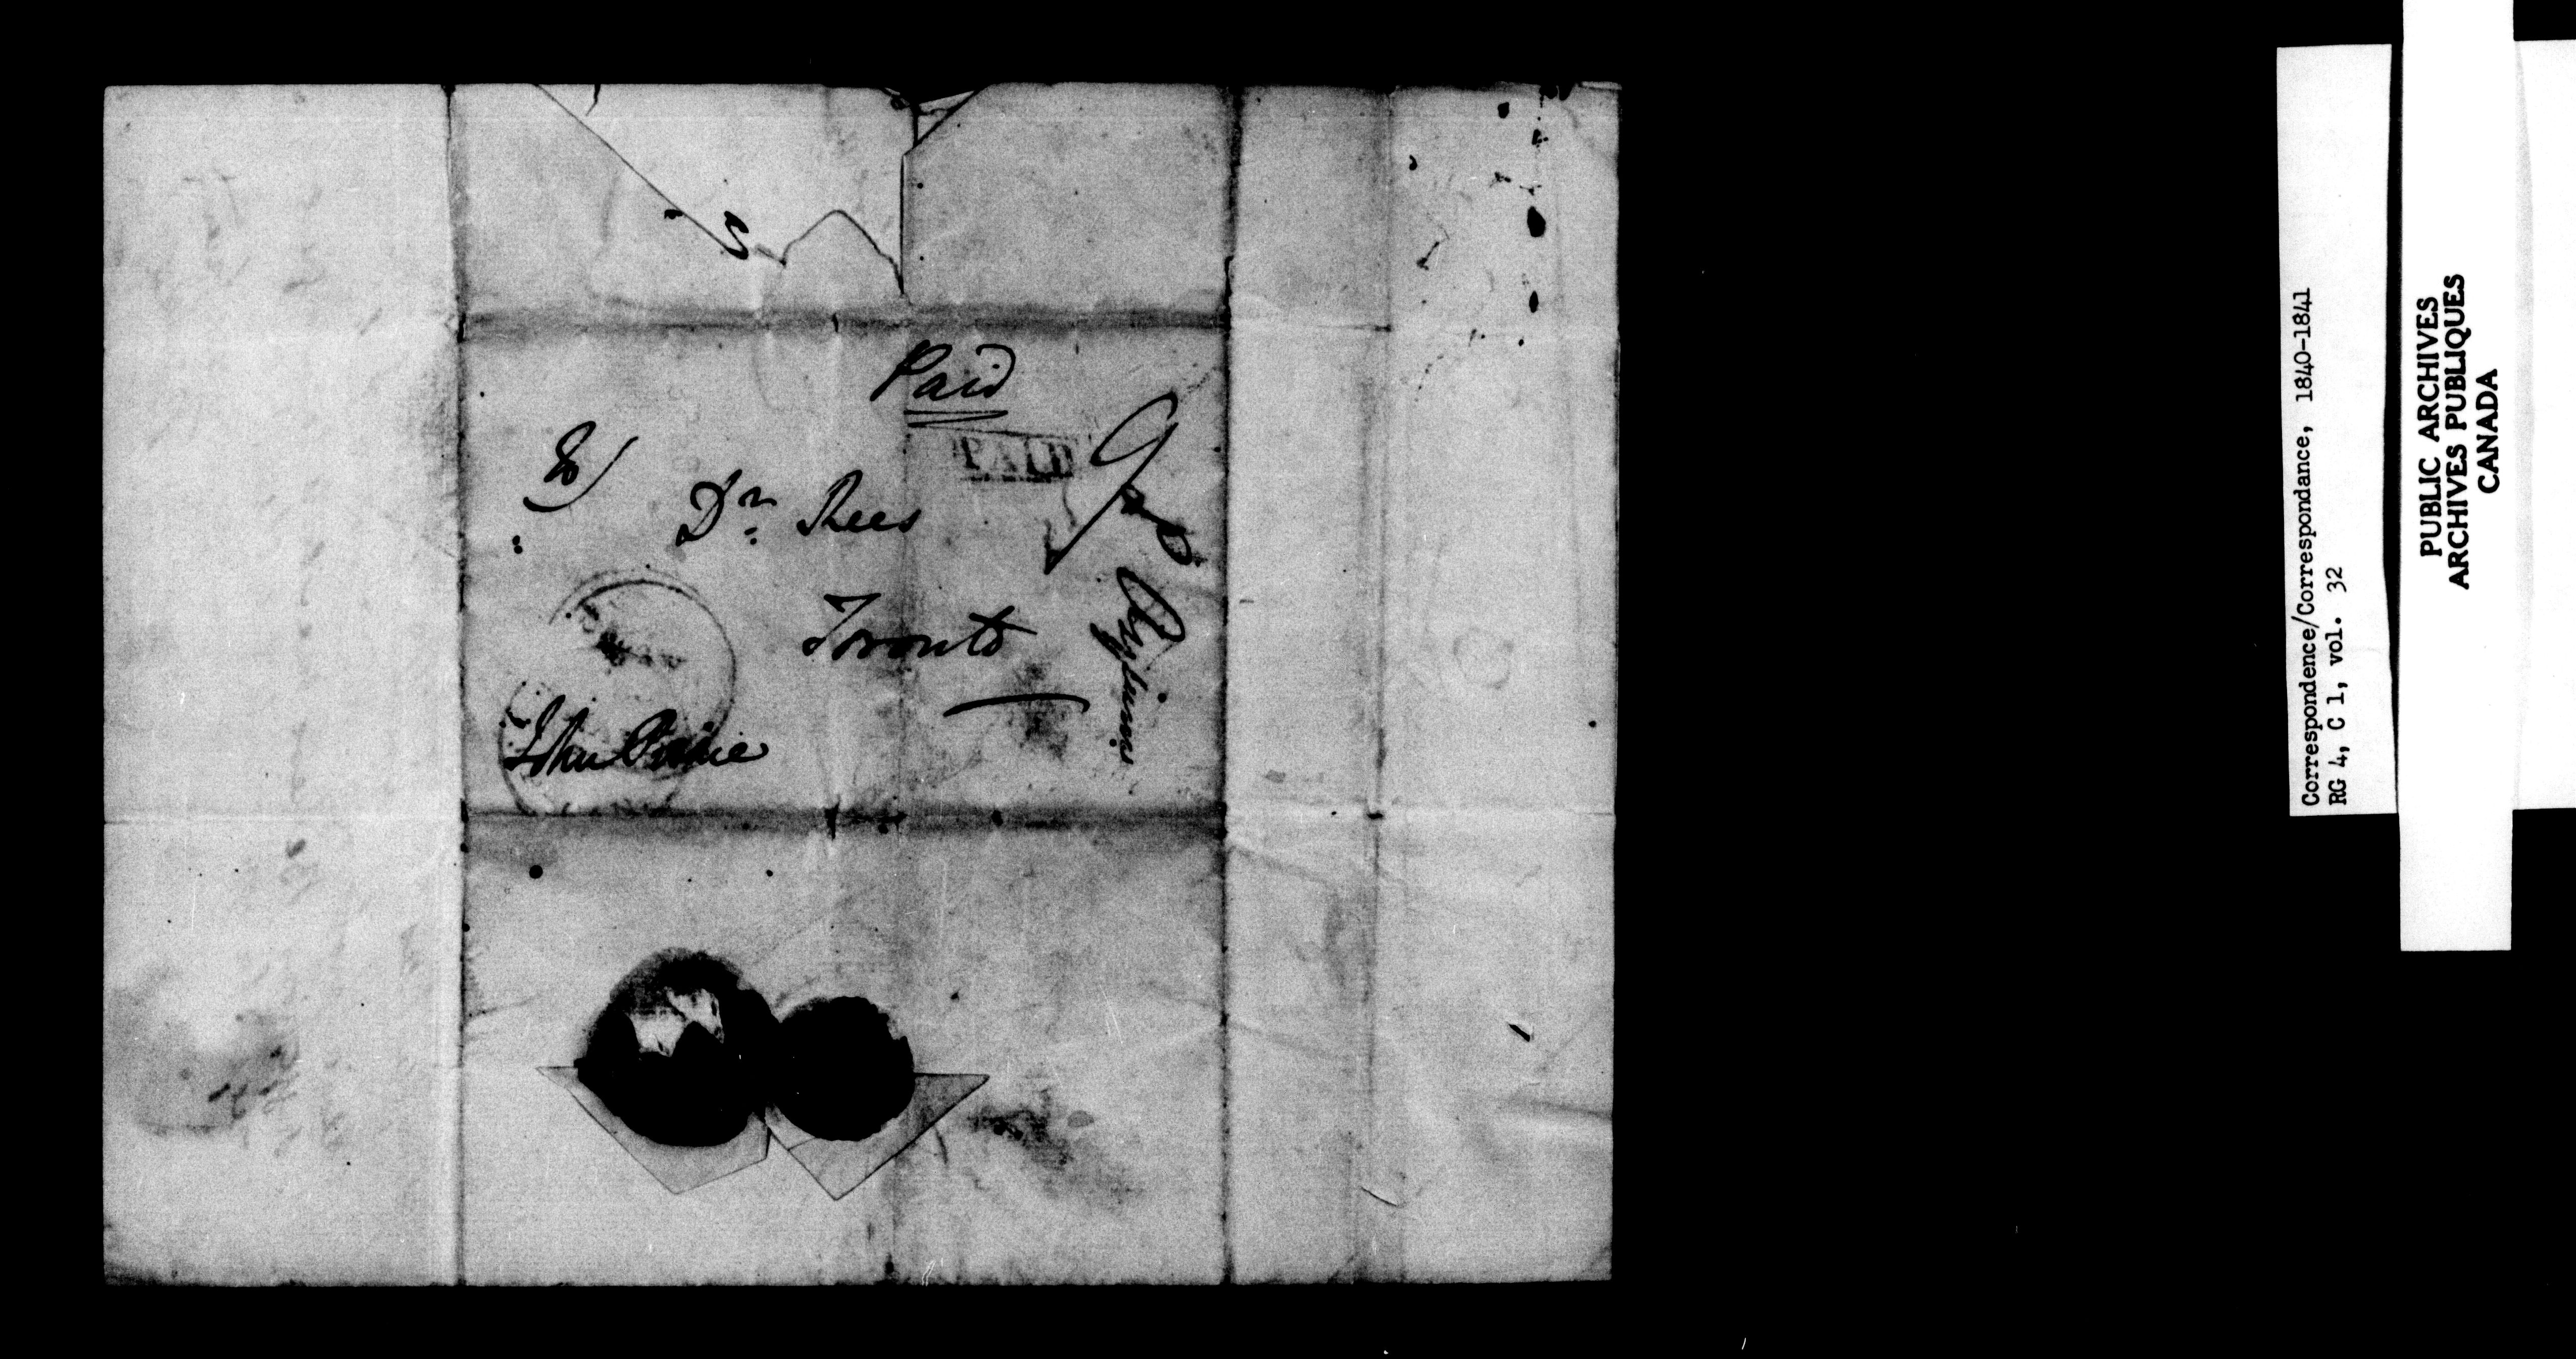 Paid
PAID
9
8
Dr. Rees
Toronto
Asylums
John
Correspondence/Correspondance, 1840-1841
RG 4, C 1, vol. 32
PUBLIC ARCHIVES
ARCHIVES PUBLIQUES
CANADA